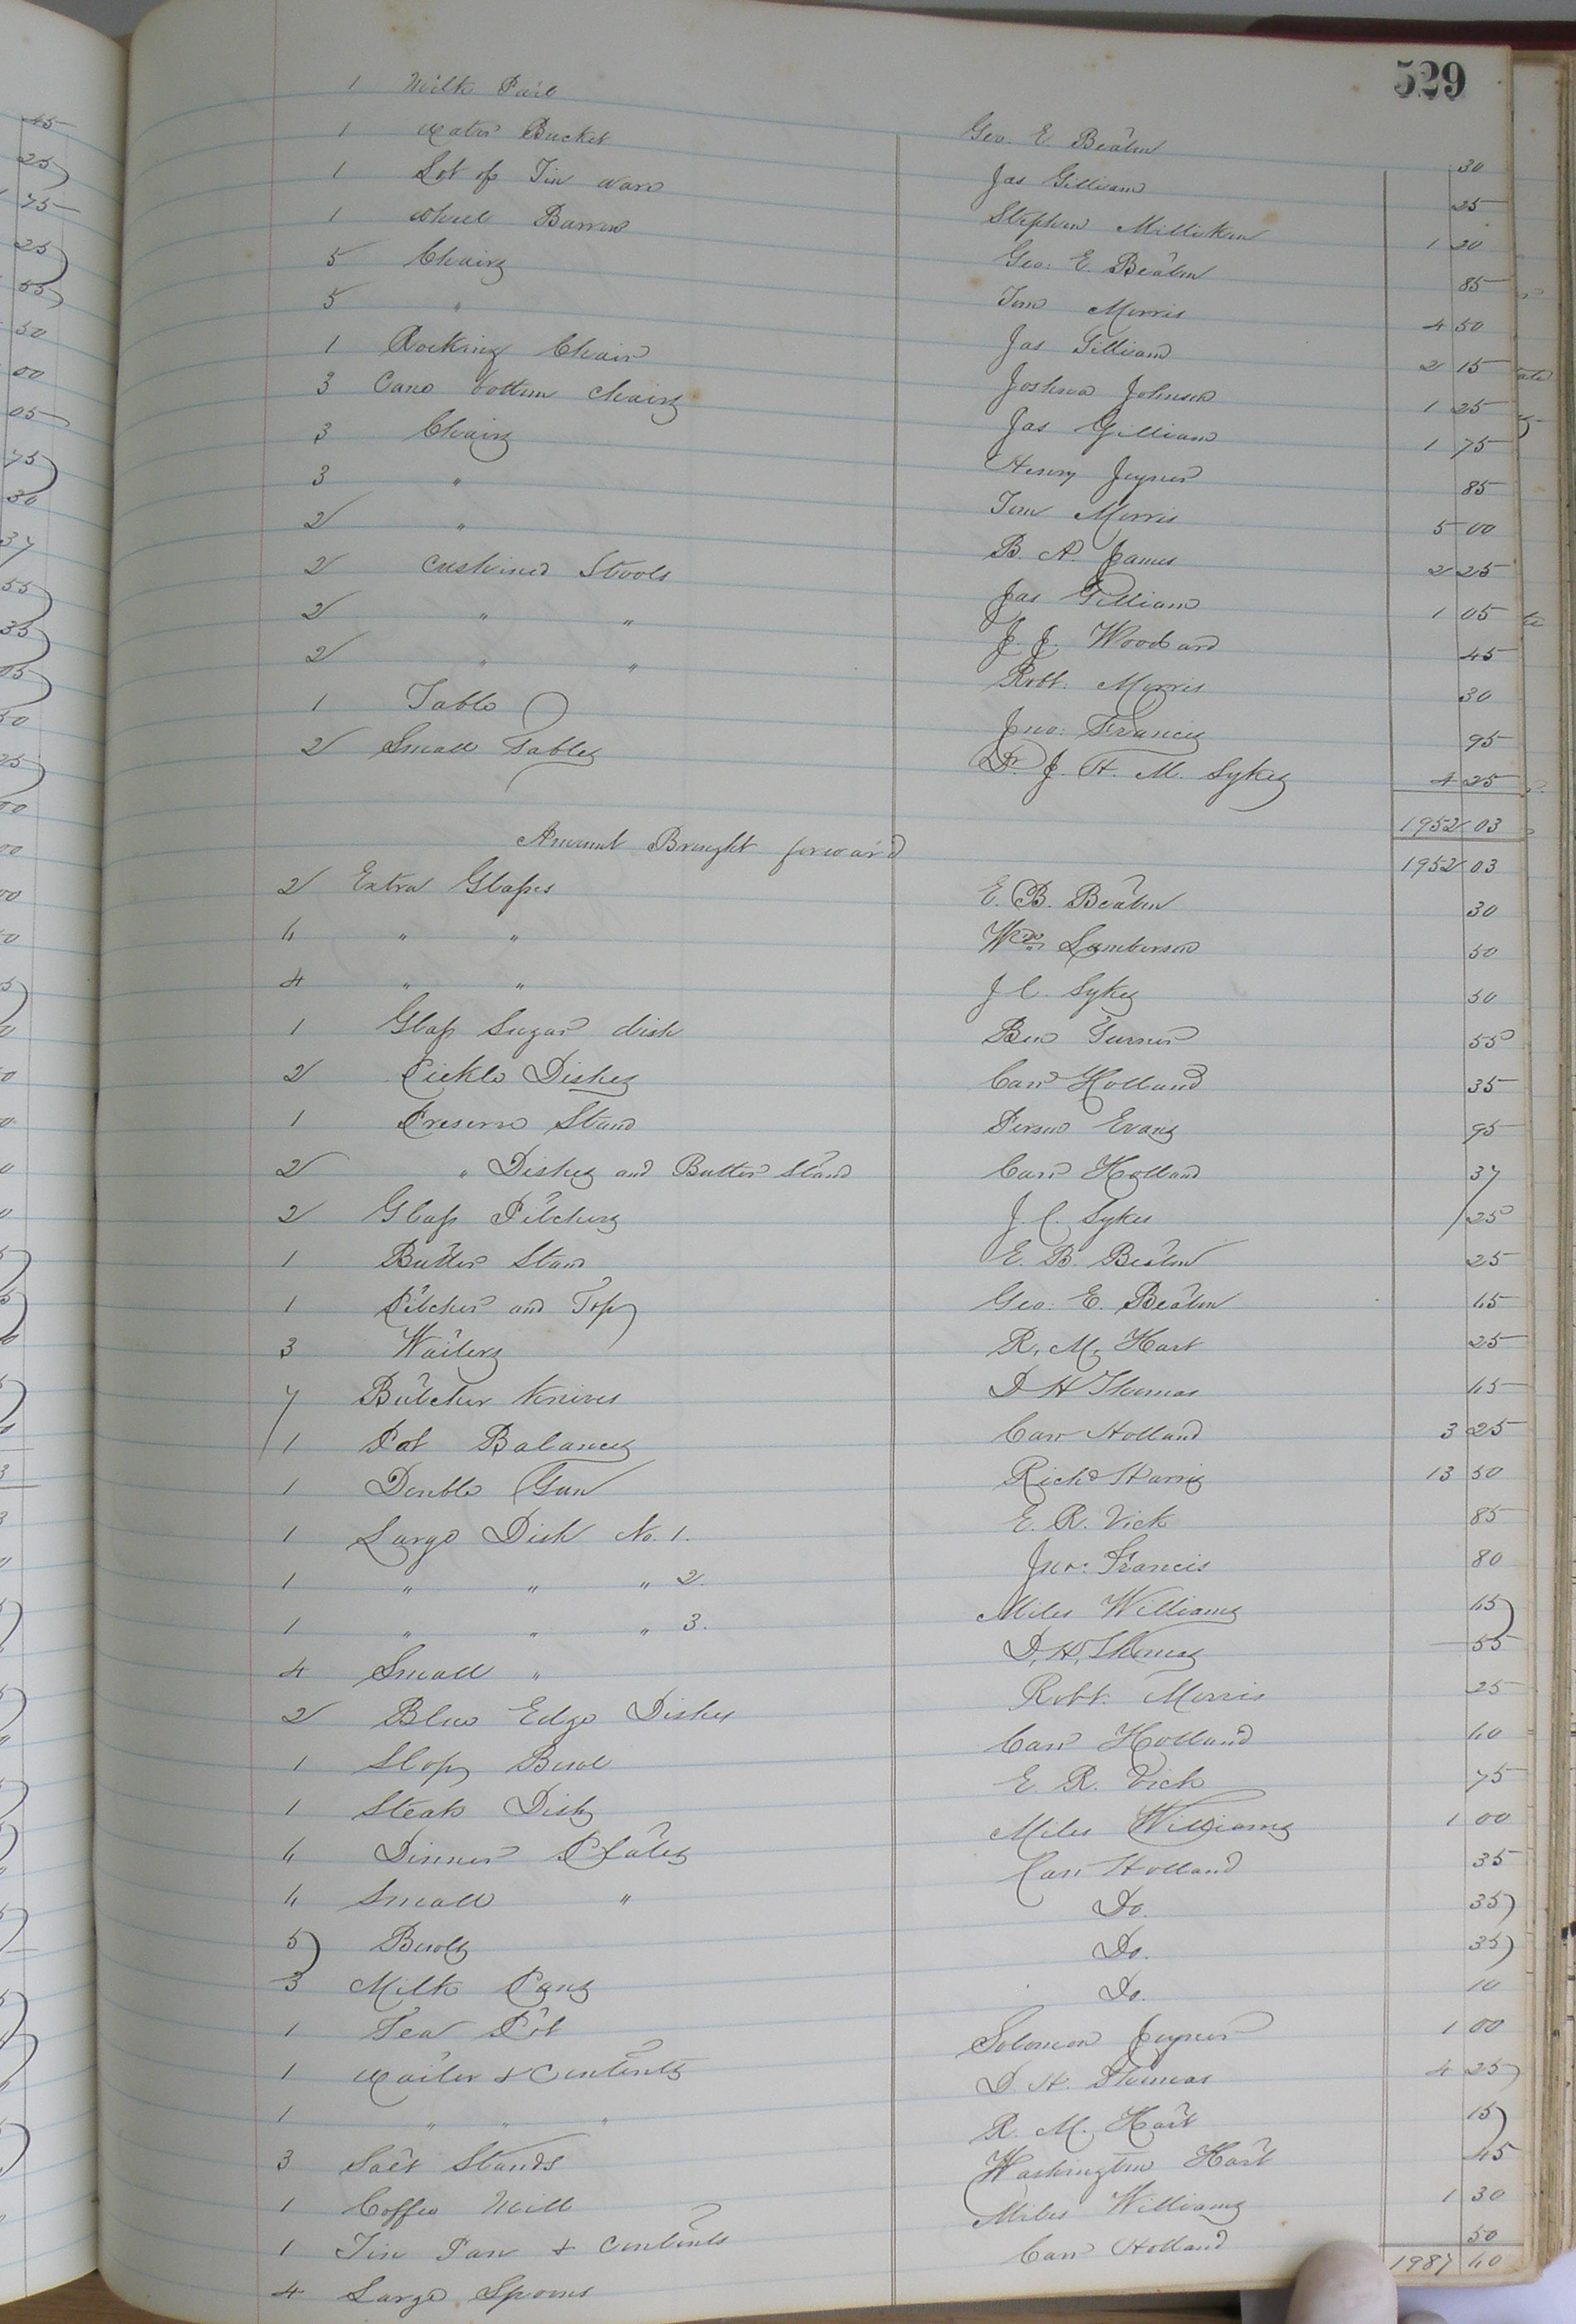 529
1 Milk Pail Geo. E Beaton 30
1 Water Bucket Jas Gilliam 25
1 Lot of Tin ware Stephen Milliken 1 20
1 Wheel Barrow Geo: E. Beaton 85
5 Chairs Tom Morris 4 50
5 " Jas Gilliam 2 15
1 Rocking Chair Joshua Johnson 1 25
3 Cane bottom chairs Jas Gilliam 1 75
3 Chairs Henry Joyner 85
3 " Tom Morris 5 00
2 " B. A. James 2 25
2 cushined Stools Jas Gilliam 1 05
2 " " J. J. Woodard 45
2 " " Robt. Morris 30
1 Table Jno: Francis 95
2 Small Tables Dr J. H. M. Sykes 4 25
1952 03
Amount Brought forward 1952 03
2 Extra Glasses E. B. Beaton 30
6 " " Wm Lamberson 50
4 " " J C. Sykes 50
1 Glass Sugar dish Ben Turner 55
2 Pickle Dishes Carr Holland 35
1 Preserve Stand Person Evans 95
2 " Dishes and Butter Stand Carr Holland 37
2 Glass Pitchers J. C. Sykes 25
1 Butter Stand E. B. Beaton 25
1 Pitcher and Top Geo: E. Beaton 65
3 Waiters R. M. Hart 25
7 Butcher Knives D H Thomas 65
1 Pat Balances Carr Holland 3 25
1 Double Gun Richd Harris 13 50
1 Large Dish No. 1. E. R. Vick 85
1 " " " 2. Jno: Francis 80
1 " " " 3. Miles Williams 65
4 Small " D. H. Thomas 55
2 Blue Edge Dishes Robt. Morris 25
1 Slop Bowl Carr Holland 60
1 Steak Dish E. R. Vick 75
6 Dinner Plates Miles Williams 1 00
6 Small " Carr Holland 35
5 Bowls Do. 35
3 Milk Pans Do. 35
1 Tea Pot Do. 10
1 Waiter & Contents Solomon Joyner 1 00
1 " " " D. H. Thomas 4 25
3 Salt Stands R. M. Hart 15
1 Coffee Mill Washington Hart 45
1 Tin Pan & Contents Miles Williams 1 30
4 Large Spoons Carr Holland 50
1987 60